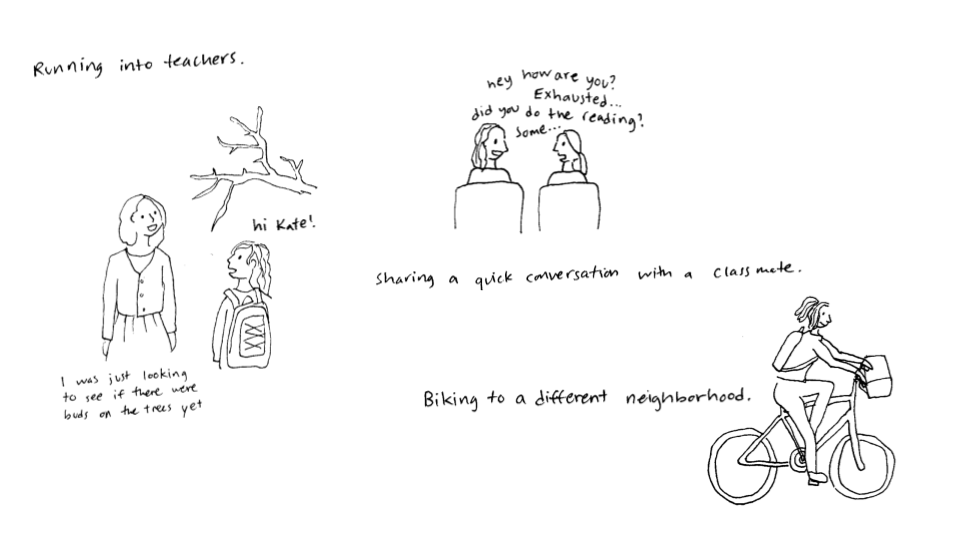 Running into teachers.
hi Kate!
I was just looking
to see if there were
buds on the trees yet
hey how are you?
Exhausted...
did you do the reading?
some...
Sharing a quick conversation with a classmate.
Biking to a different neighborhood.